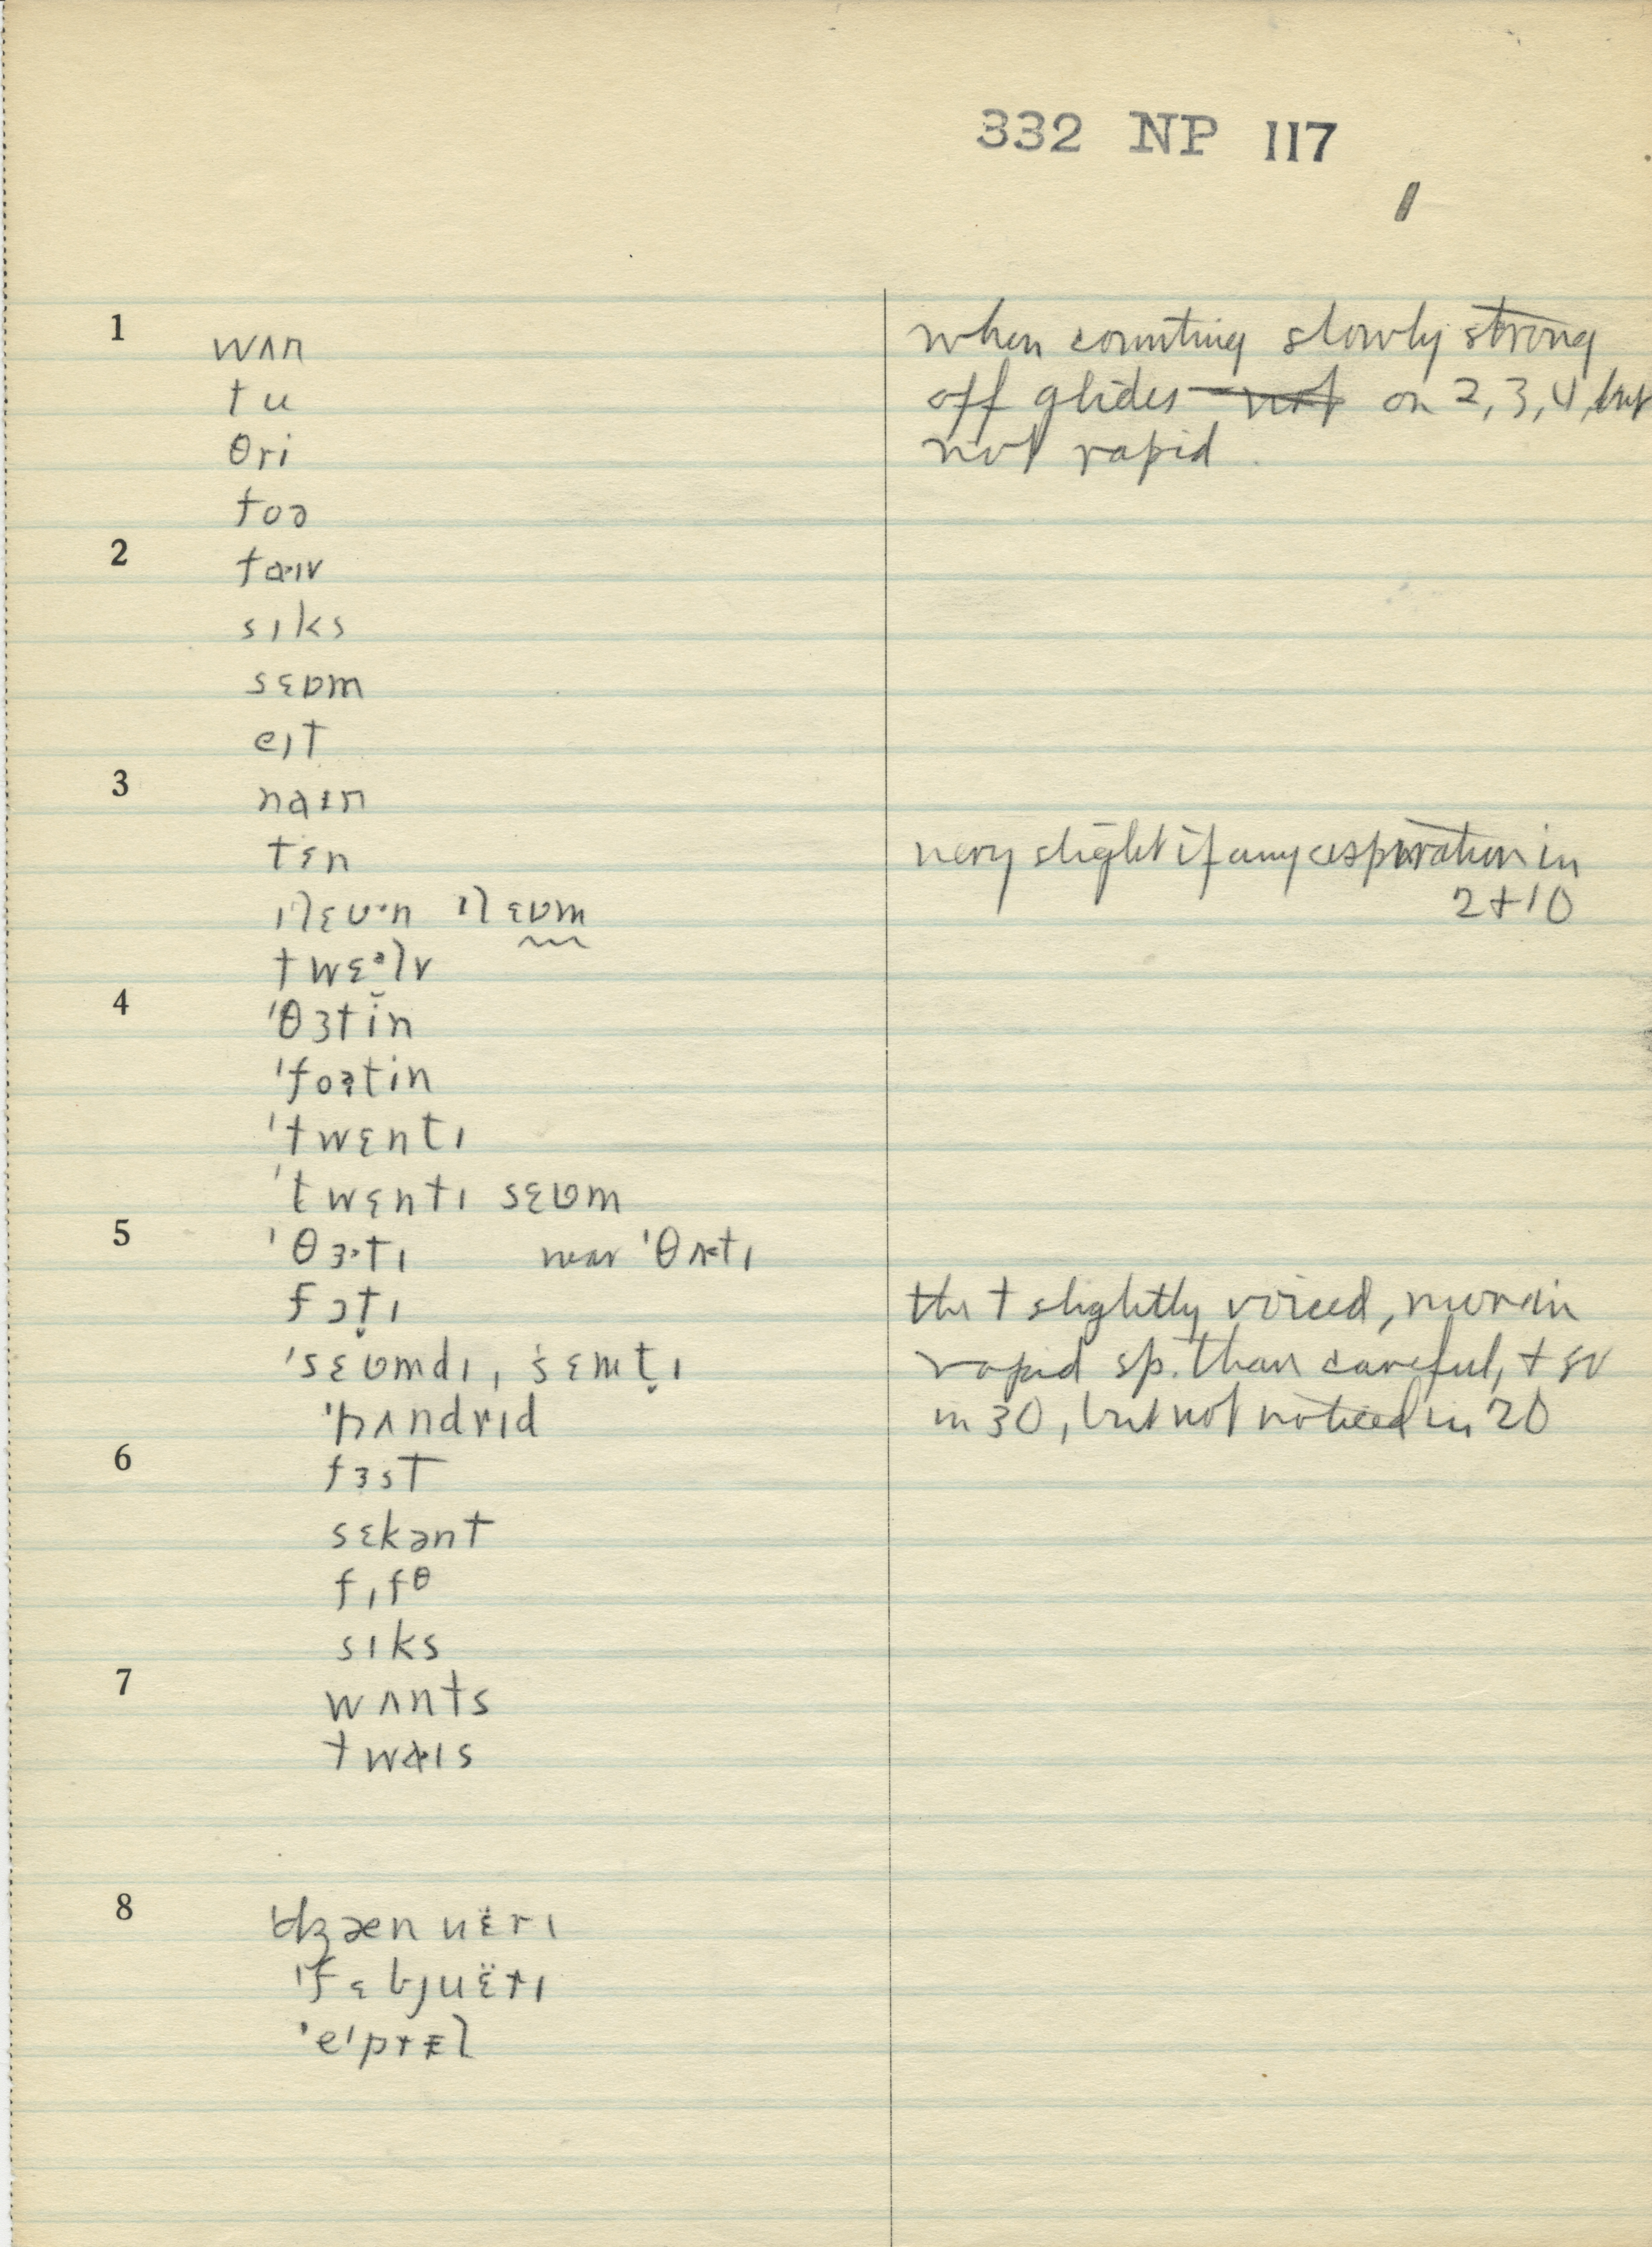 332 NP 117
1
1 wʌn
tu
θri
foə
2 fɑ·ɪv
sɪks
sɛʋm
eɪt
3 naɪn
tɛn
ɪlɛʋn ɪlɛʋm
twɛᵊlv
4 'θɜtin
'foətin
'twɛntɪ
'twɛntɪ sɛʋm
5 'θɜ·tɪ near 'θʌtɪ
fɔt̬ɪ
'sɛʋmdɪ, 'sɛmt̬ɪ
'hʌndrɪd
6 fɜst
sɛkənt
fɪfθ
sɪks
7 wʌnts
twɑɪs
8 'dʒænuɛ̈rɪ
'fɛbjuɛ̈rɪ
'eɪprɪl
when counting slowly strong
off glides not on 2, 3, 4, but
not rapid.
very slight if any aspiration in
2 + 10
the t slightly voiced, more in
rapid sp. than careful, + so
in 30, but not noticed in 20